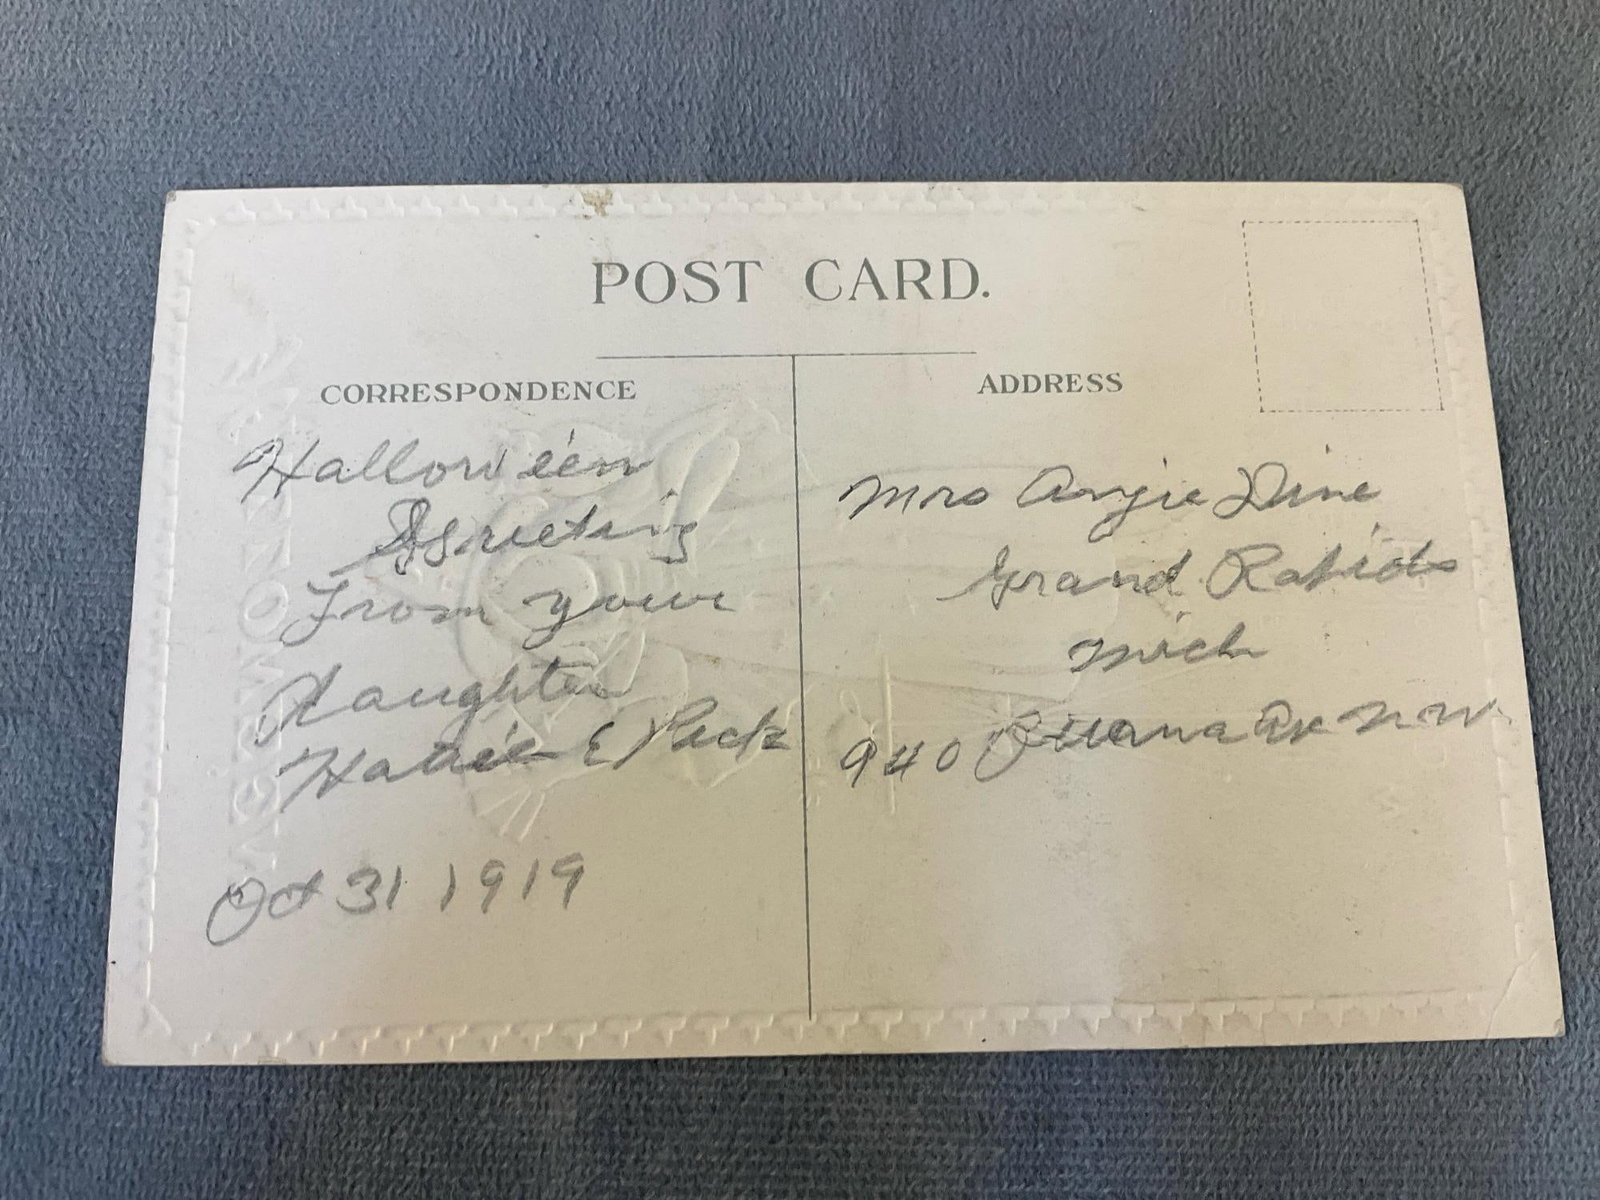 POST CARD.
CORRESPONDENCE
Halloween
Greeting
From your
daughter
Hattie E Peck
Oct 31 1919
ADDRESS
Mrs Angie Dine
Grand Rapids
Mich
940 Ottawa Av N W